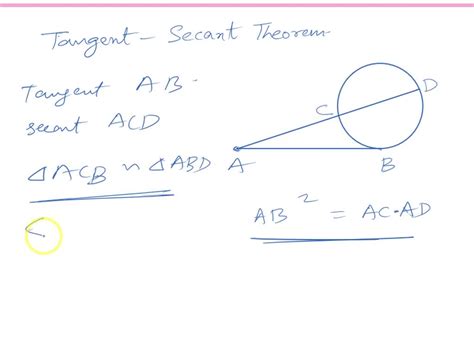 Tangent - Secant Theorem
Tangent AB.
secant ACD
△ACB ~ △ABD
A
B
C
D
AB² = AC·AD